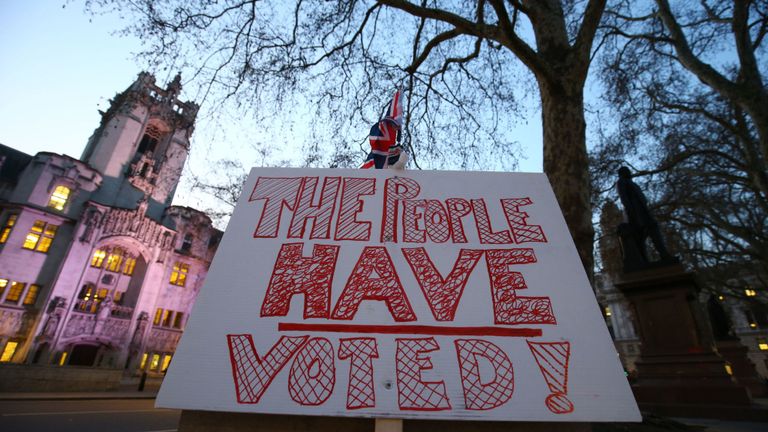 THE PEOPLE
HAVE
VOTED!